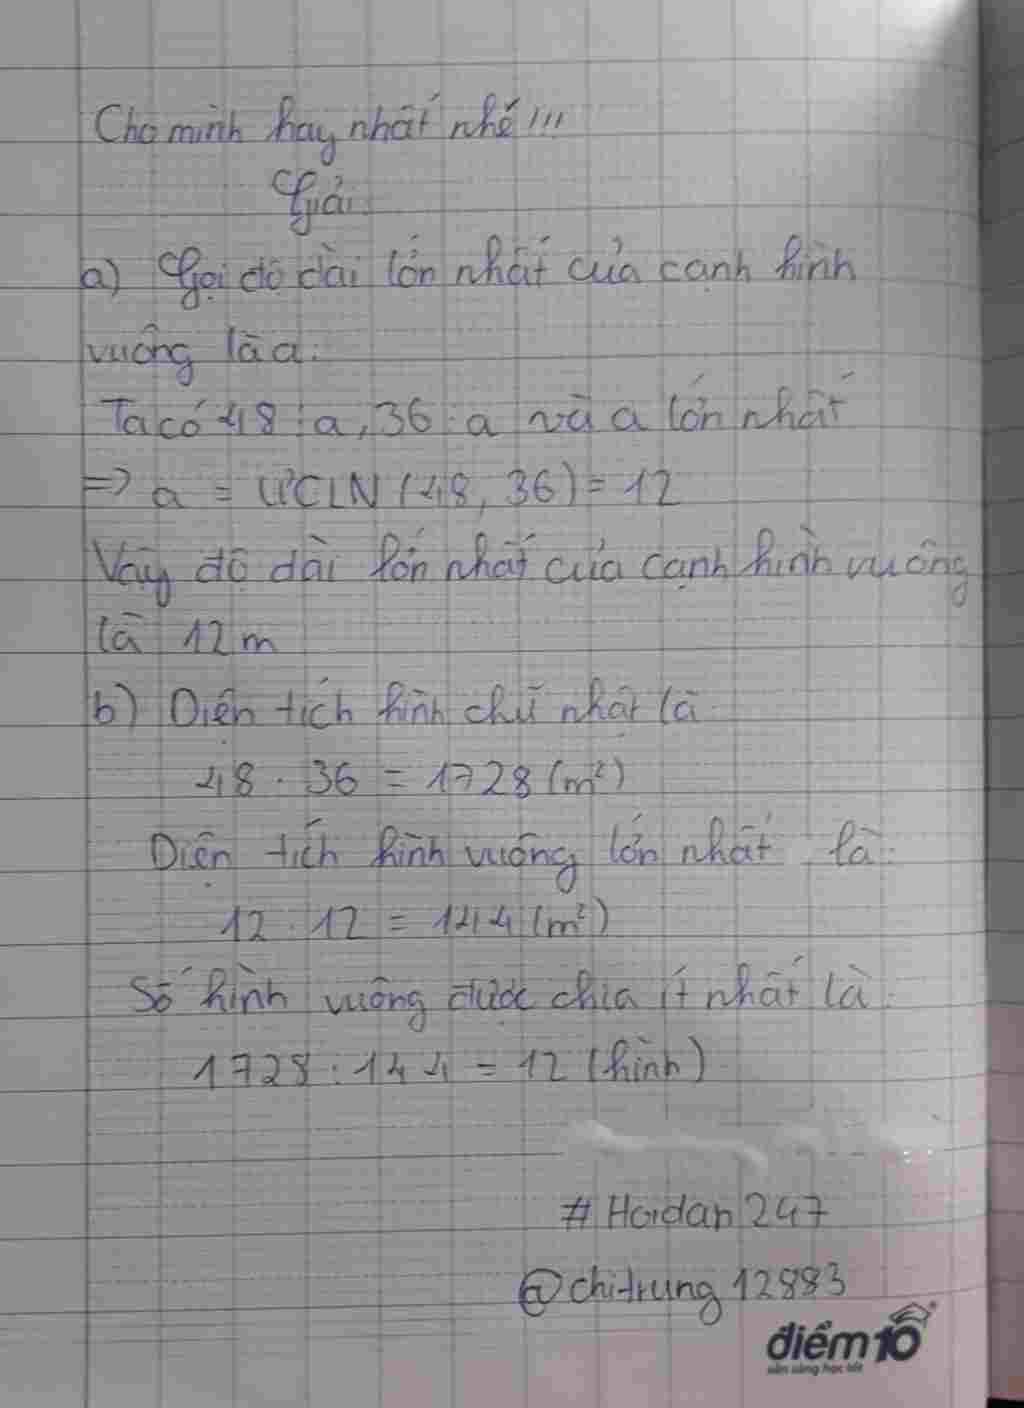 Cho mình hay nhất nhé!!!
Giải
a) Gọi độ dài lớn nhất của cạnh hình
vuông là a.
Ta có 48 : a, 36 : a và a lớn nhất
=> a = ƯCLN (48, 36) = 12
Vậy độ dài lớn nhất của cạnh hình vuông
là 12 m
b) Diện tích hình chữ nhật là
48 . 36 = 1728 (m²)
Diện tích hình vuông lớn nhất là:
12 . 12 = 144 (m²)
Số hình vuông được chia ít nhất là:
1728 : 144 = 12 (hình)
# Hoidap 247
@chitrung 12883
điểm10
sẵn sàng học tốt